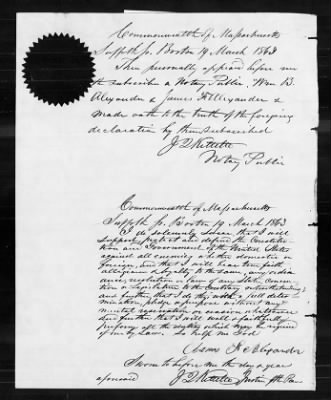 Commonwealth of Massachusetts
Suffolk ss. Boston 19 March 1863
Then personally appeared before me
the subscriber a Notary Public, Wm B.
Alexander & James H Alexander &
made oath to the truth of the foregoing
declaration by them subscribed
Notary Public
Commonwealth of Massachusetts
Suffolk ss. Boston 19 March 1863
I do solemnly swear that I will
support, protect and defend the Constitu-
tion and Government of the United States
against all enemies whether domestic or
foreign, and that I will bear true faith
allegiance & loyalty to the same, any ordin-
ance, resolution or law of any State Conven-
tion or Legislature to the Contrary notwithstanding;
and further that I do this with a full deter-
mination, pledge & purpose without any
mental reservation or evasion whatsoever
and further that I will well & faithfully
perform all the duties which may be required
of me by Law. So help me God.
Alexander
Sworn to before me the day & year
aforesaid